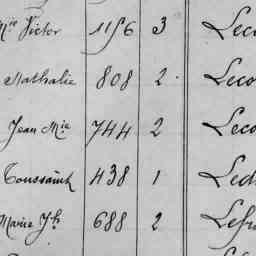 Mie Victor 1156 3 Lec
Nathalie 808 2 Leco
Jean Mie 744 2 Leco
Toussaint 438 1 Led
Marie Jh 688 2 Lefr